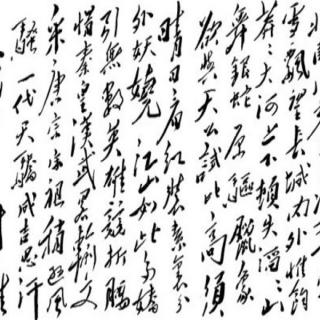 雪飄望長城内外惟餘
莽莽大河上下頓失滔滔山
舞銀蛇原驅臘象
欲與天公試比高須
晴日看紅裝素裹分
外妖嬈江山如此多嬌
引無數英雄競折腰
惜秦皇漢武略輸文
采唐宗宋祖稍遜風
騷一代天驕成吉思汗